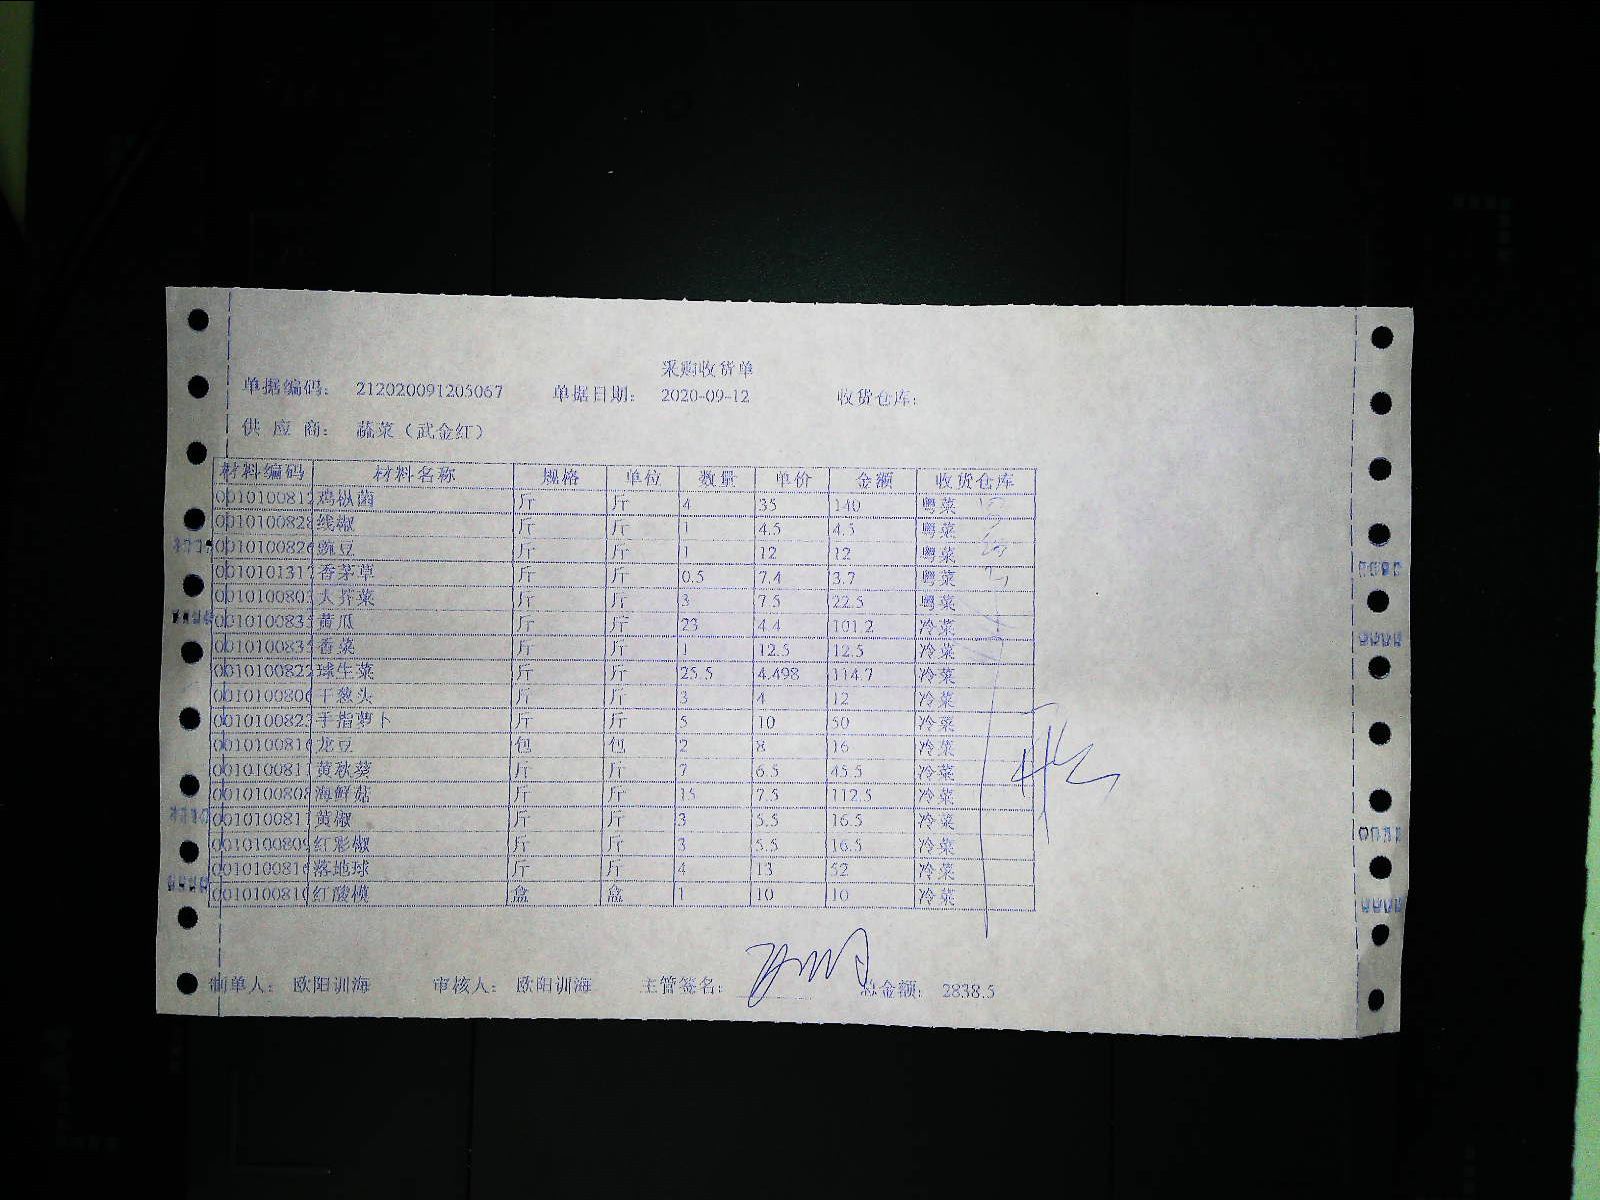 采购收货单
单据编码: 212020091205067 单据日期: 2020-09-12 收货仓库:
供 应 商: 蔬菜（武金红）
材料编码 材料名称 规格 单位 数量 单价 金额 收货仓库
001010081 鸡枞菌 斤 斤 4 35 140 粤菜
001010082 线椒 斤 斤 1 4.5 4.5 粤菜
001010082 豌豆 斤 斤 1 12 12 粤菜
001010131 香茅草 斤 斤 0.5 7.4 3.7 粤菜
001010080 大芥菜 斤 斤 3 7.5 22.5 粤菜
001010083 黄瓜 斤 斤 23 4.4 101.2 冷菜
001010083 香菜 斤 斤 1 12.5 12.5 冷菜
001010082 球生菜 斤 斤 25.5 4.498 114.7 冷菜
001010080 干葱头 斤 斤 3 4 12 冷菜
001010082 手指萝卜 斤 斤 5 10 50 冷菜
001010081 龙豆 包 包 2 8 16 冷菜
001010081 黄秋葵 斤 斤 7 6.5 45.5 冷菜
001010080 海鲜菇 斤 斤 15 7.5 112.5 冷菜
001010081 黄椒 斤 斤 3 5.5 16.5 冷菜
001010080 红彩椒 斤 斤 3 5.5 16.5 冷菜
001010081 落地球 斤 斤 4 13 52 冷菜
001010081 红酸模 盒 盒 1 10 10 冷菜
制单人: 欧阳训海 审核人: 欧阳训海 主管签名: 总金额: 2838.5